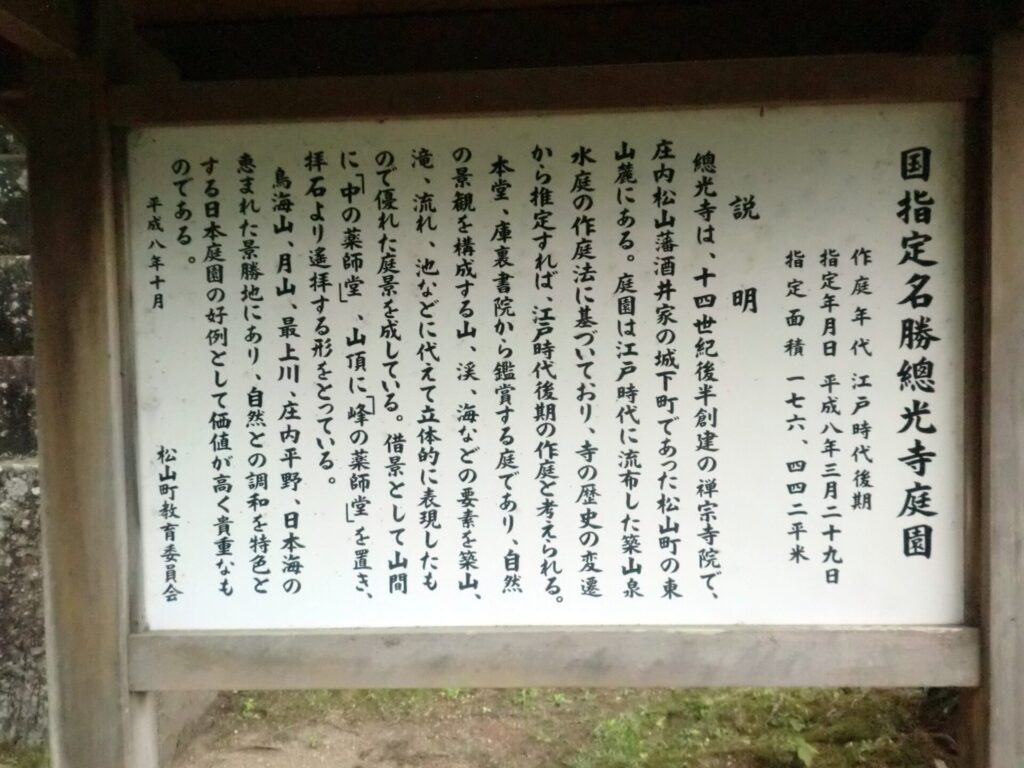 国指定名勝總光寺庭園
作庭年代 江戸時代後期
指定年月日 平成八年三月二十九日
指定面積 一七六、四四二平米
説明
總光寺は、十四世紀後半創建の禅宗寺院で、
庄内松山藩酒井家の城下町であった松山町の東
山麓にある。庭園は江戸時代に流布した築山泉
水庭の作庭法に基づいており、寺の歴史の変遷
から推定すれば、江戸時代後期の作庭と考えられる。
本堂、庫裏書院から鑑賞する庭であり、自然
の景観を構成する山、渓、海などの要素を築山、
滝、流れ、池などに代えて立体的に表現したも
ので優れた庭景を成している。借景として山間
に「中の薬師堂」、山頂に「峰の薬師堂」を置き、
拝石より遙拝する形をとっている。
鳥海山、月山、最上川、庄内平野、日本海の
恵まれた景勝地にあり、自然との調和を特色と
する日本庭園の好例として価値が高く貴重なも
のである。
平成八年十月
松山町教育委員会